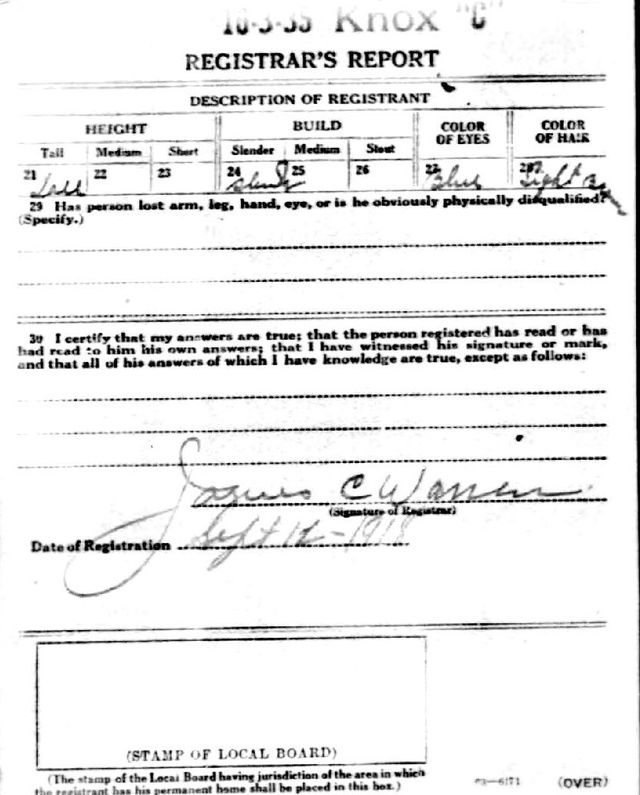 16-3-35 Knox "C"
REGISTRAR'S REPORT
DESCRIPTION OF REGISTRANT
HEIGHT BUILD COLOR OF EYES COLOR OF HAIR
Tall Medium Short Slender Medium Stout
21 22 23 24 25 26 27 28
Tall Slender Blue Light
29 Has person lost arm, leg, hand, eye, or is he obviously physically disqualified?
(Specify.)
30 I certify that my answers are true; that the person registered has read or has
had read to him his own answers; that I have witnessed his signature or mark,
and that all of his answers of which I have knowledge are true, except as follows:
James C Warren
(Signature of Registrar)
Date of Registration Sept 12-1918
(STAMP OF LOCAL BOARD)
(The stamp of the Local Board having jurisdiction of the area in which
the registrant has his permanent home shall be placed in this box.)
03—6171 (OVER)